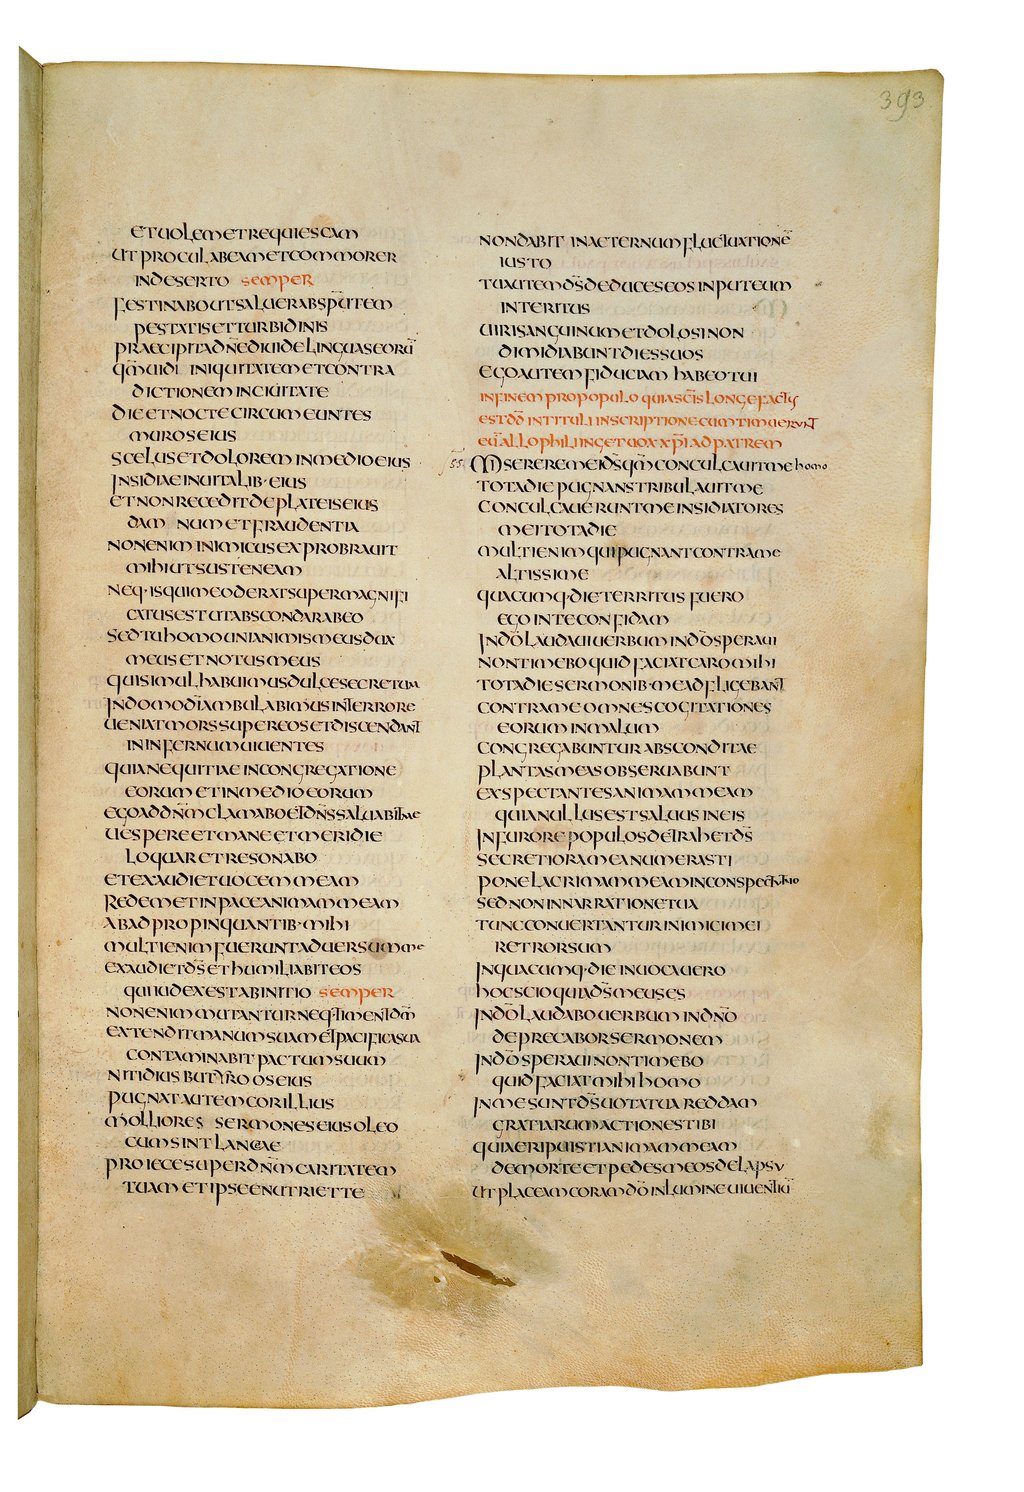 393
ETUOLEMETREQUIESCAM
UTPROCULABEAMETCOMMORER
INDESERTO SEMPER
FESTINABOUTSALUERABSPŪTEM
PESTATISETTURBIDINIS
PRAECIPITADN̄EDIUIDELINGUASEORŪ
QM̄UIDI INIQUITATEMETCONTRA
DICTIONEMINCIUITATE
DIEETNOCTECIRCUMEUNTES
MUROSEIUS
SCELUSETDOLOREMINMEDIOEIUS
INSIDIAEINUITALIB·EIUS
ETNONRECEDITDEPLATEISEIUS
DAM NUMETFRAUDENTIA
NONENIMINIMICUSEXPROBRAUIT
MIHIUTSUSTENEAM
NEQ·ISQUIMEODERATSUPERMAGNIFI
CATUSESTUTABSCONDARABEO
SEDTUHOMOUNIANIMISMEUSDUX
MEUSETNOTUSMEUS
QUISIMULHABUIMUSDULCESECRETUM
INDOMODĪAMBULABIMUSINTERRORE
UENIATMORSSUPEREOSETDISCENDANT
ININFERNUMUIUENTES
QUIANEQUITIAEINCONGREGATIONE
EORUMETINMEDIOEORUM
EGOADDN̄MCLAMABOETDN̄SSALUABITME
UESPEREETMANEETMERIDIE
LOQUARETRESONABO
ETEXAUDIETUOCEMMEAM
REDEMETINPACEANIMAMMEAM
ABADPROPINQUANTIB·MIHI
MULTIENIMFUERUNTADUERSUMME
EXAUDIETDS̄ETHUMILIABITEOS
QUIIUDEXESTABINITIO SEMPER
NONENIMMUTANTURNEQ·TIMENTDM̄
EXTENDITMANUMSUAMETPACIFICASUA
CONTAMINABITPACTUMSUUM
NITIDIUSBUTYROOSEIUS
PUGNATAUTEMCORILLIUS
MOLLIORES SERMONESEIUSOLEO
CUMSINTLANCEAE
PROIECESUPERDN̄MCARITATEM
TUAMETIPSEENUTRIETTE
NONDABIT INAETERNUMFLUCTUATIONĒ
IUSTO
TUAUTEMDS̄DEDUCESEOSINPUTEUM
INTERITUS
UIRISANGUINUMETDOLOSINON
DIMIDIABUNTDIESSUOS
EGOAUTEMFIDUCIAMHABEOTUI
INFINEMPROPOPULOQUIASC̄ISLONGEFACTUS
ESTDD̄INTITULIINSCRIPTIONECUMTIMUERUNT
EUALLOPHILIINGETUOXXP̄IADPATREM
55 MISEREREMEIDS̄QM̄CONCULCAUITMEHOMO
TOTADIEPUGNANSTRIBULAUITME
CONCULCAUERUNTMEINSIDIATORES
MEITOTADIE
MULTIENIMQUIPUGNANTCONTRAME
ALTISSIME
QUACUMQ·DIETERRITUSFUERO
EGOINTECONFIDAM
INDO̅LAUDAUIUERBUMINDO̅SPERAUI
NONTIMEBOQUIDFACIATCAROMIHI
TOTADIESERMONIB·MEADFLIGEBANT
CONTRAMEOMNESCOGITATIONES
EORUMINMALUM
CONGREGABUNTURABSCONDITAE
PLANTASMEASOBSERUABUNT
EXSPECTANTESANIMAMMEAM
QUIANULLUSESTSALUUSINEIS
INFUROREPOPULOSDETRAHETDS̄
SECRETIORAMEANUMERASTI
PONELACRIMAMMEAMINCONSPECTUTUO
SEDNONINNARRATIONETUA
TUNCCONUERTANTURINIMICIMEI
RETRORSUM
INQUACUMQ·DIEINUOCAUERO
HOCSCIOQUIADS̄MEUSES
INDO̅LAUDABOUERBUMINDN̄O
DEPRECABORSERMONEM
INDO̅SPERAUINONTIMEBO
QUIDFACIATMIHIHOMO
INMESUNTDS̄UOTATUAREDDAM
GRATIARUMACTIONESTIBI
QUIAERIPUISTIANIMAMMEAM
DEMORTEETPEDESMEOSDELAPSU
UTPLACEAMCORAMDO̅INLUMINEUIUENTIŪ